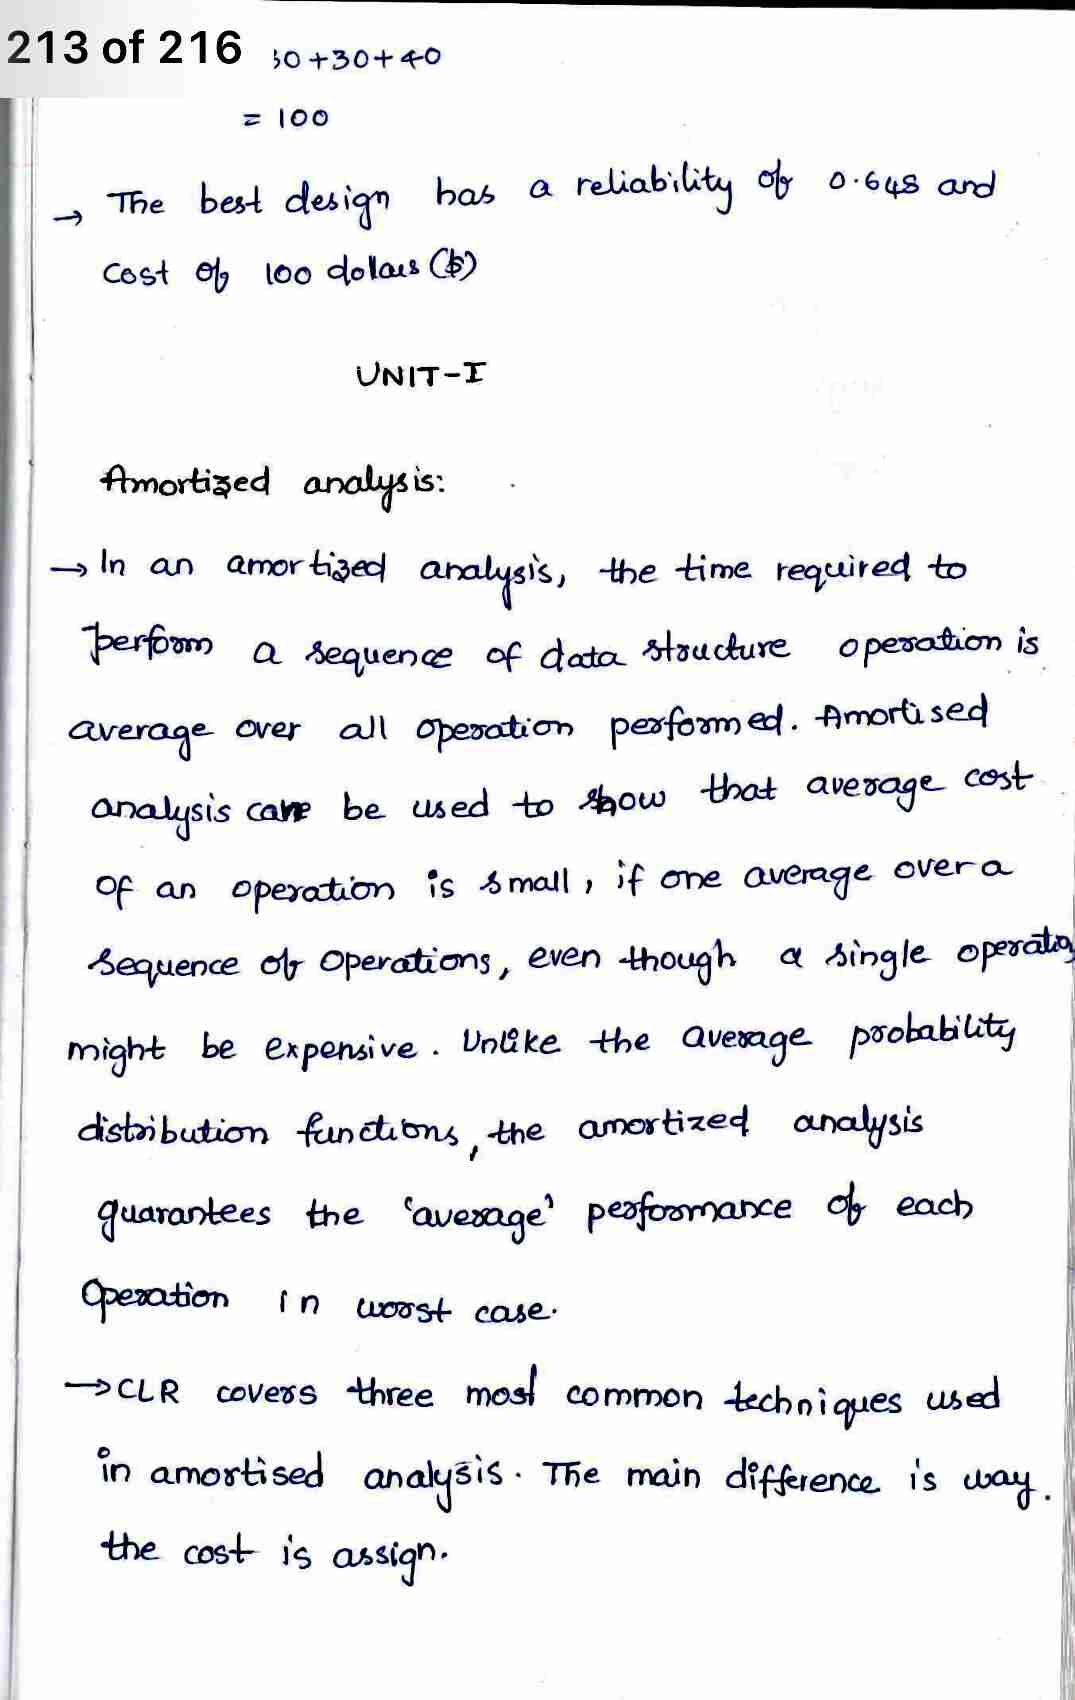 213 of 216
30+30+40
= 100
→ The best design has a reliability of 0.648 and
Cost of 100 dollars ($)
UNIT-I
Amortized analysis:
→ In an amortized analysis, the time required to
perform a sequence of data structure operation is
average over all operation performed. Amortised
analysis can be used to show that average cost
of an operation is small, if one average over a
sequence of operations, even though a single operation
might be expensive. Unlike the average probability
distribution functions, the amortized analysis
guarantees the 'average' performance of each
Operation in worst case.
→ CLR covers three most common techniques used
in amortised analysis. The main difference is way.
the cost is assign.